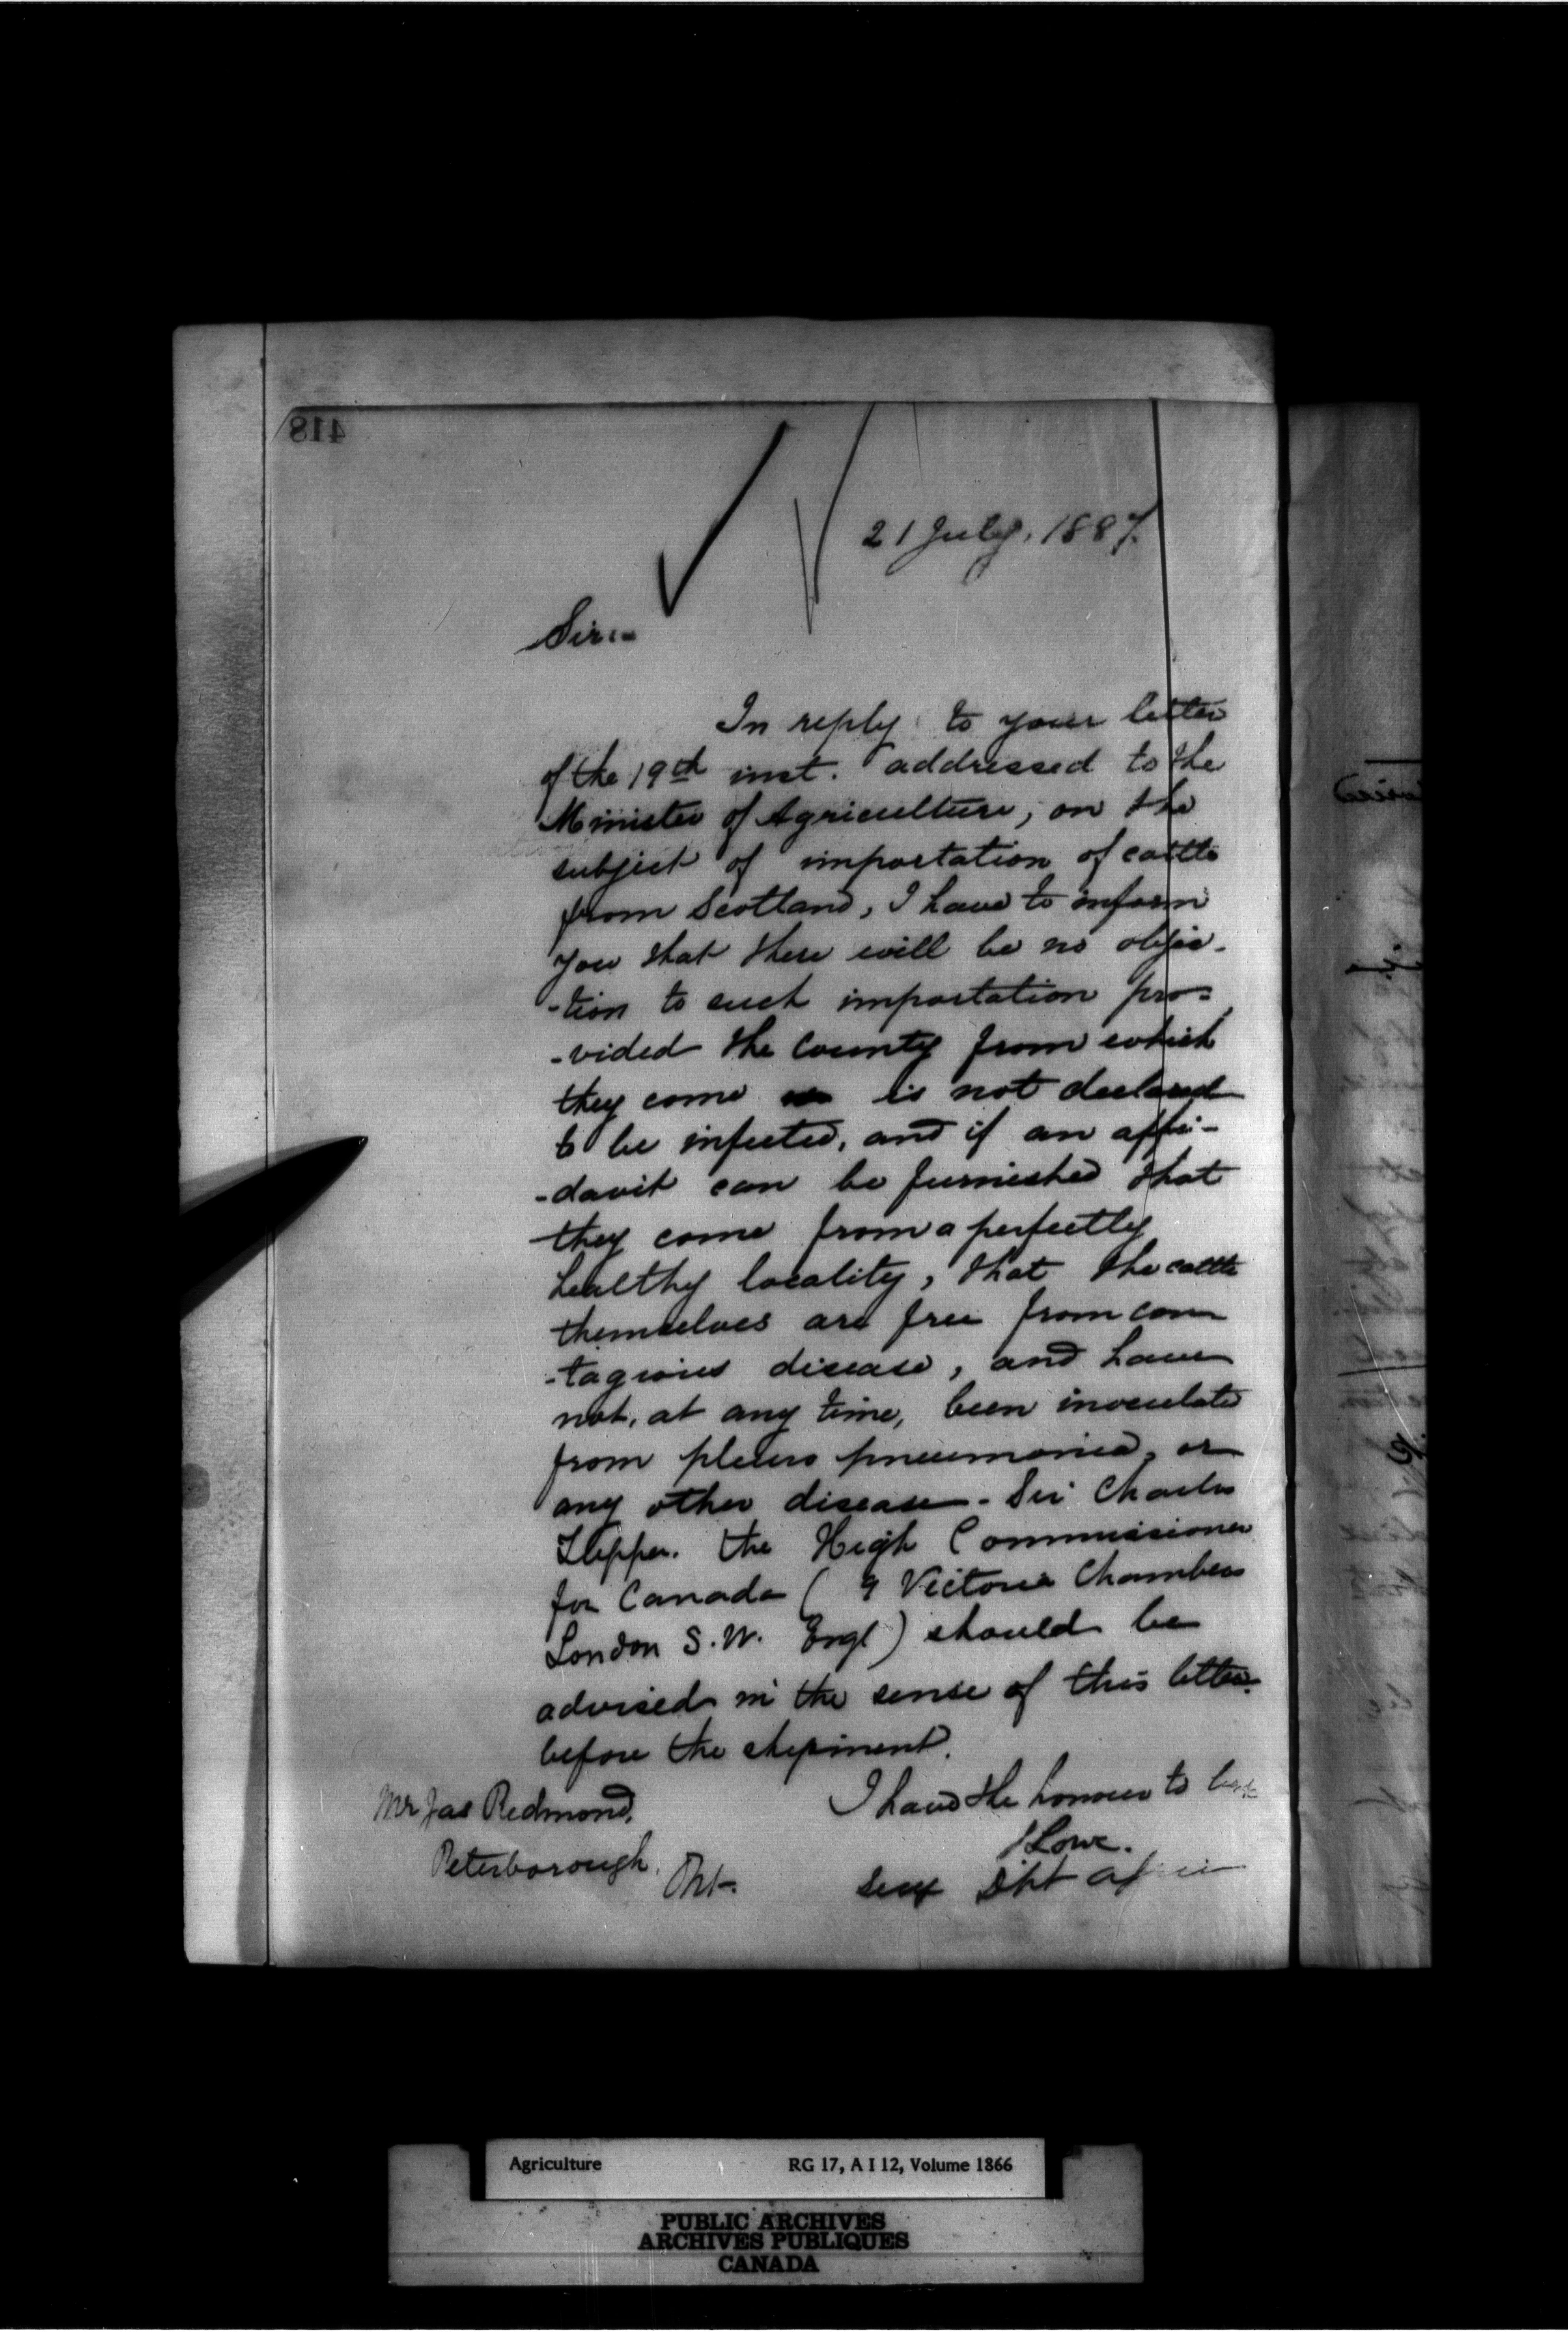 418
21 July, 1887.
Sir:-
In reply to your letter
of the 19th inst. addressed to the
Minister of Agriculture, on the
subject of importation of cattle
from Scotland, I have to inform
you that there will be no objec-
-tion to such importation pro-
-vided the County from which
they come is not declared
to be infected, and if an affi-
-davit can be furnished that
they come from a perfectly
healthy locality, that the cattle
themselves are free from con
-tagious disease, and have
not, at any time, been inoculated
from pleuro pneumonia, or
any other disease. Sir Charles
Tupper. the High Commissioner
for Canada ( 9 Victoria Chambers
London S.W. Engl ) should be
advised in the sense of this letter.
before the shipment.
I have the honour to be
Mr Jas Redmond,
J Lowe.
Peterborough.
Ont.
Secy Dpt
Agriculture
RG 17, A I 12, Volume 1866
PUBLIC ARCHIVES
ARCHIVES PUBLIQUES
CANADA